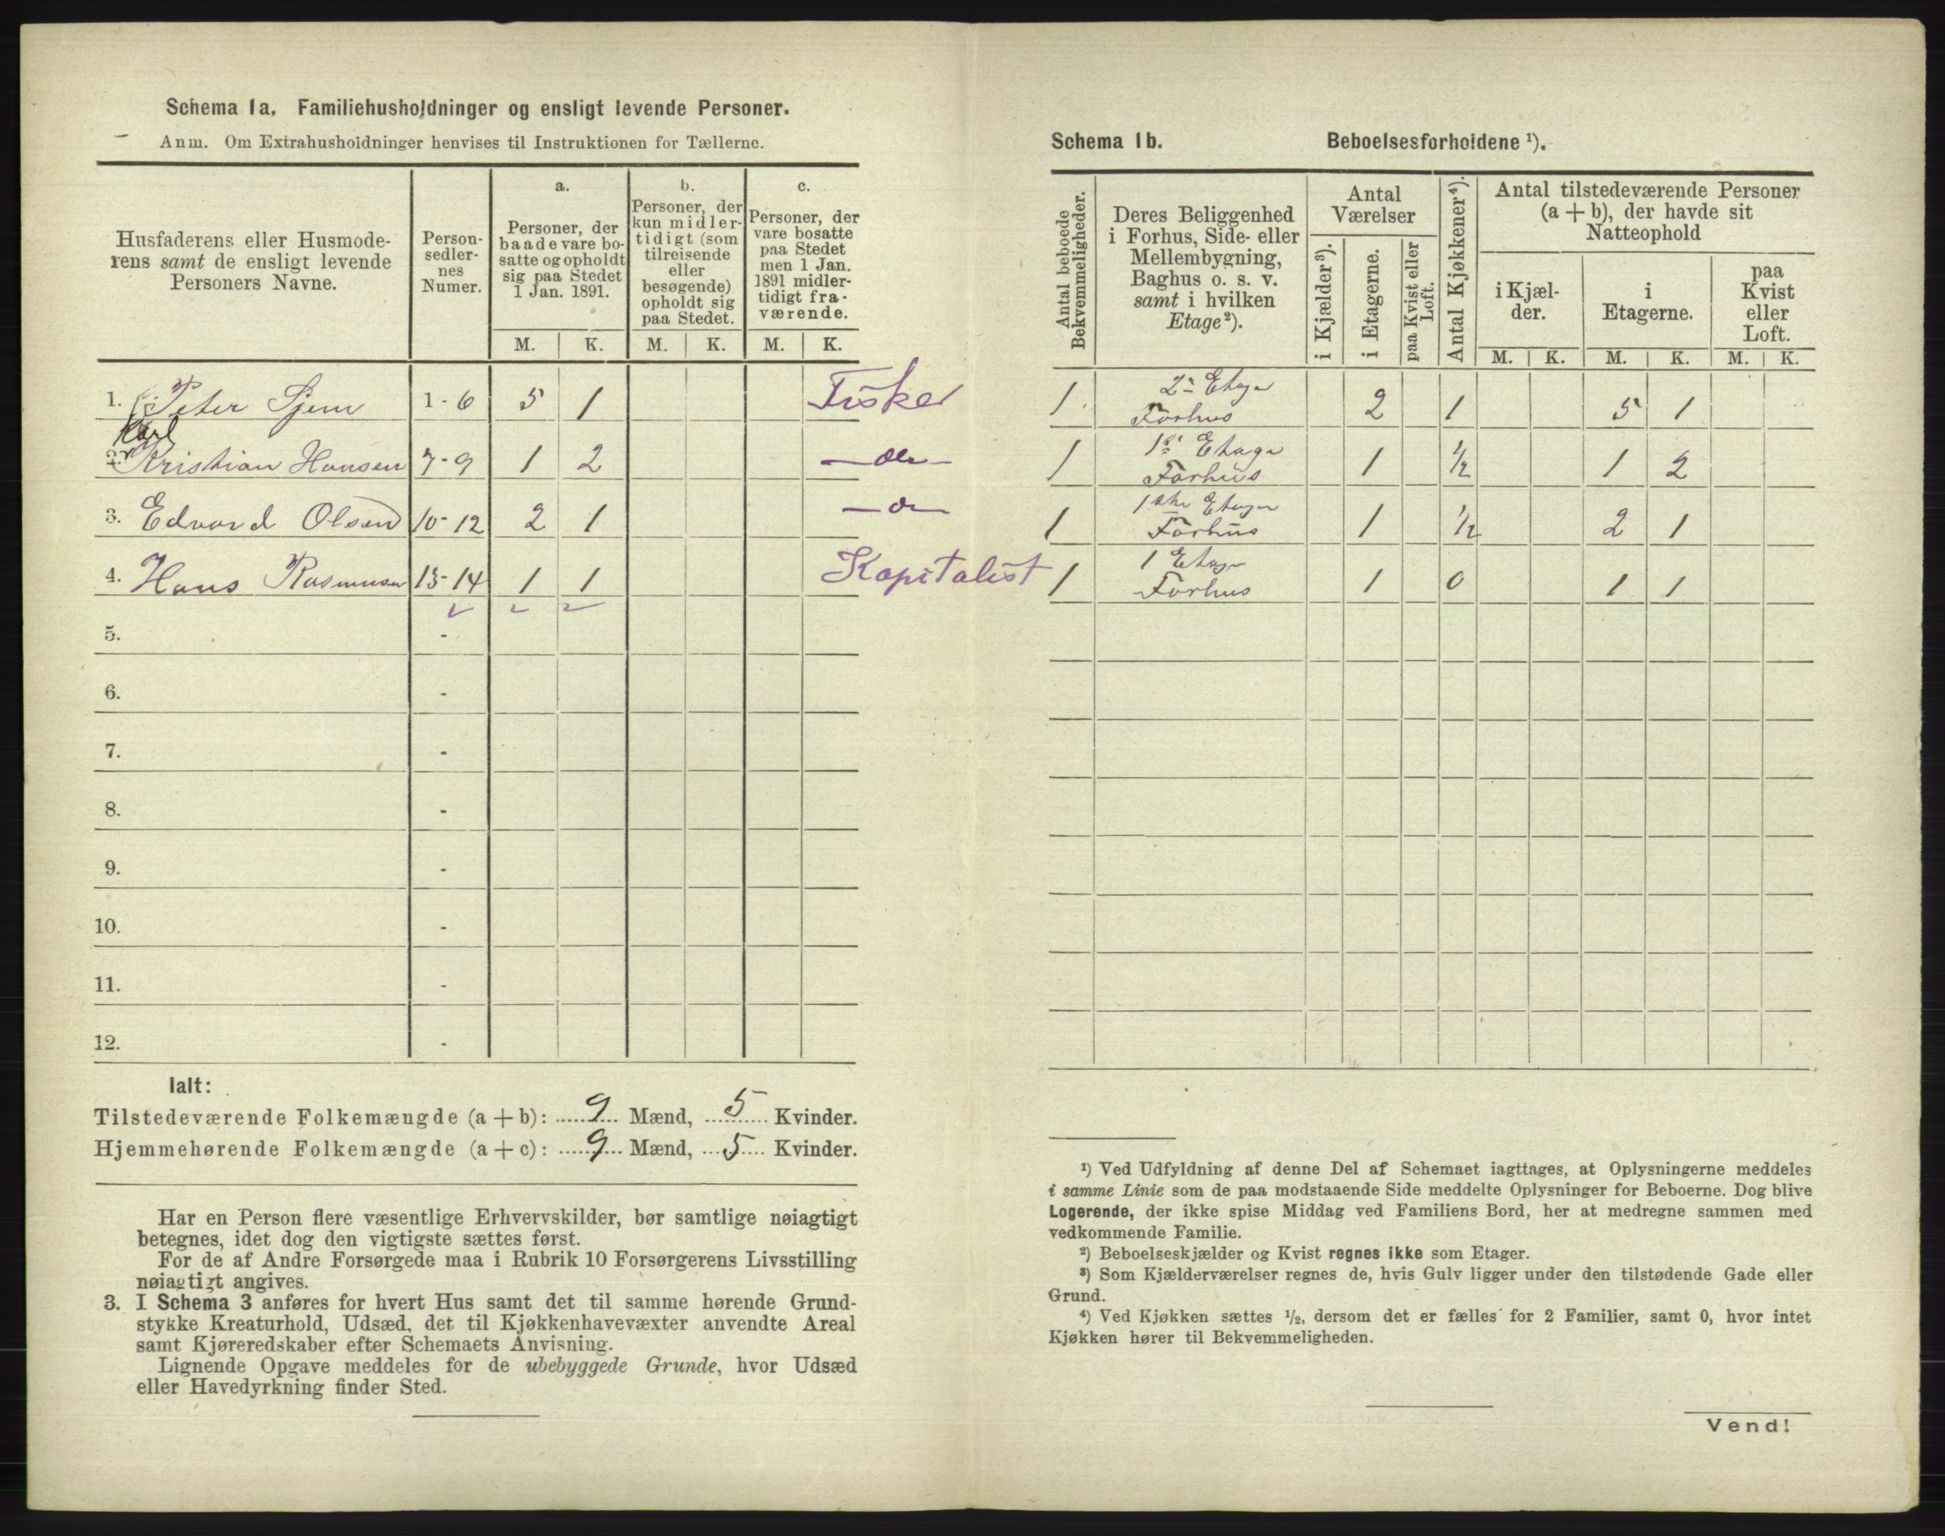 Schema 1a. Familiehusholdninger og ensligt levende Personer.
Anm. Om Extrahusholdninger henvises til Instruktionen for Tællerne.
Husfaderens eller Husmode-
rens samt de ensligt levende
Personers Navne.
Person-
sedler-
nes
Numer.
a.
Personer, der
baade vare bo-
satte og opholdt
sig paa Stedet
1 Jan. 1891.
b.
Personer, der
kun midler-
tidigt (som
tilreisende
eller
besøgende)
opholdt sig
paa Stedet.
c.
Personer, der
vare bosatte
paa Stedet
men 1 Jan.
1891 midler-
tidigt fra-
værende.
M. K. M. K. M. K.
1. Peter Sjem 1-6 5 1 Fisker
Karl
2. Kristian Hansen 7-9 1 2 — do —
3. Edvard Olsen 10-12 2 1 — do —
4. Hans Rasmusen 13-14 1 1 Kapitalist
5. -
6. -
7. -
8. -
9. -
10. -
11. -
12. -
Ialt:
Tilstedeværende Folkemængde (a + b): 9 Mænd, 5 Kvinder.
Hjemmehørende Folkemængde (a + c): 9 Mænd, 5 Kvinder.
Har en Person flere væsentlige Erhvervskilder, bør samtlige nøiagtigt
betegnes, idet dog den vigtigste sættes først.
For de af Andre Forsørgede maa i Rubrik 10 Forsørgerens Livsstilling
nøiagtigt angives.
3. I Schema 3 anføres for hvert Hus samt det til samme hørende Grund-
stykke Kreaturhold, Udsæd, det til Kjøkkenhavevæxter anvendte Areal
samt Kjøreredskaber efter Schemaets Anvisning.
Lignende Opgave meddeles for de ubebyggede Grunde, hvor Udsæd
eller Havedyrkning finder Sted.
Schema 1b. Beboelsesforholdene ¹).
Antal beboede
Bekvemmeligheder.
Deres Beliggenhed
i Forhus, Side- eller
Mellembygning,
Baghus o. s. v.
samt i hvilken
Etage²).
Antal
Værelser
i Kjælder³).
i Etagerne.
paa Kvist eller
Loft.
Antal Kjøkkener⁴).
Antal tilstedeværende Personer
(a + b), der havde sit
Natteophold
i Kjæl-
der.
i
Etagerne.
paa
Kvist
eller
Loft.
M. K. M. K. M. K.
1 2⁻ Etage
Forhus 2 1 5 1
1 1ste Etage
Forhus 1 ½ 1 2
1 1ste Etage
Forhus 1 ½ 2 1
1 1 Etage
Forhus 1 0 1 1
¹) Ved Udfyldning af denne Del af Schemaet iagttages, at Oplysningerne meddeles
i samme Linie som de paa modstaaende Side meddelte Oplysninger for Beboerne. Dog blive
Logerende, der ikke spise Middag ved Familiens Bord, her at medregne sammen med
vedkommende Familie.
²) Beboelseskjælder og Kvist regnes ikke som Etager.
³) Som Kjælderværelser regnes de, hvis Gulv ligger under den tilstødende Gade eller
Grund.
⁴) Ved Kjøkken sættes ½, dersom det er fælles for 2 Familier, samt 0, hvor intet
Kjøkken hører til Bekvemmeligheden.
Vend!